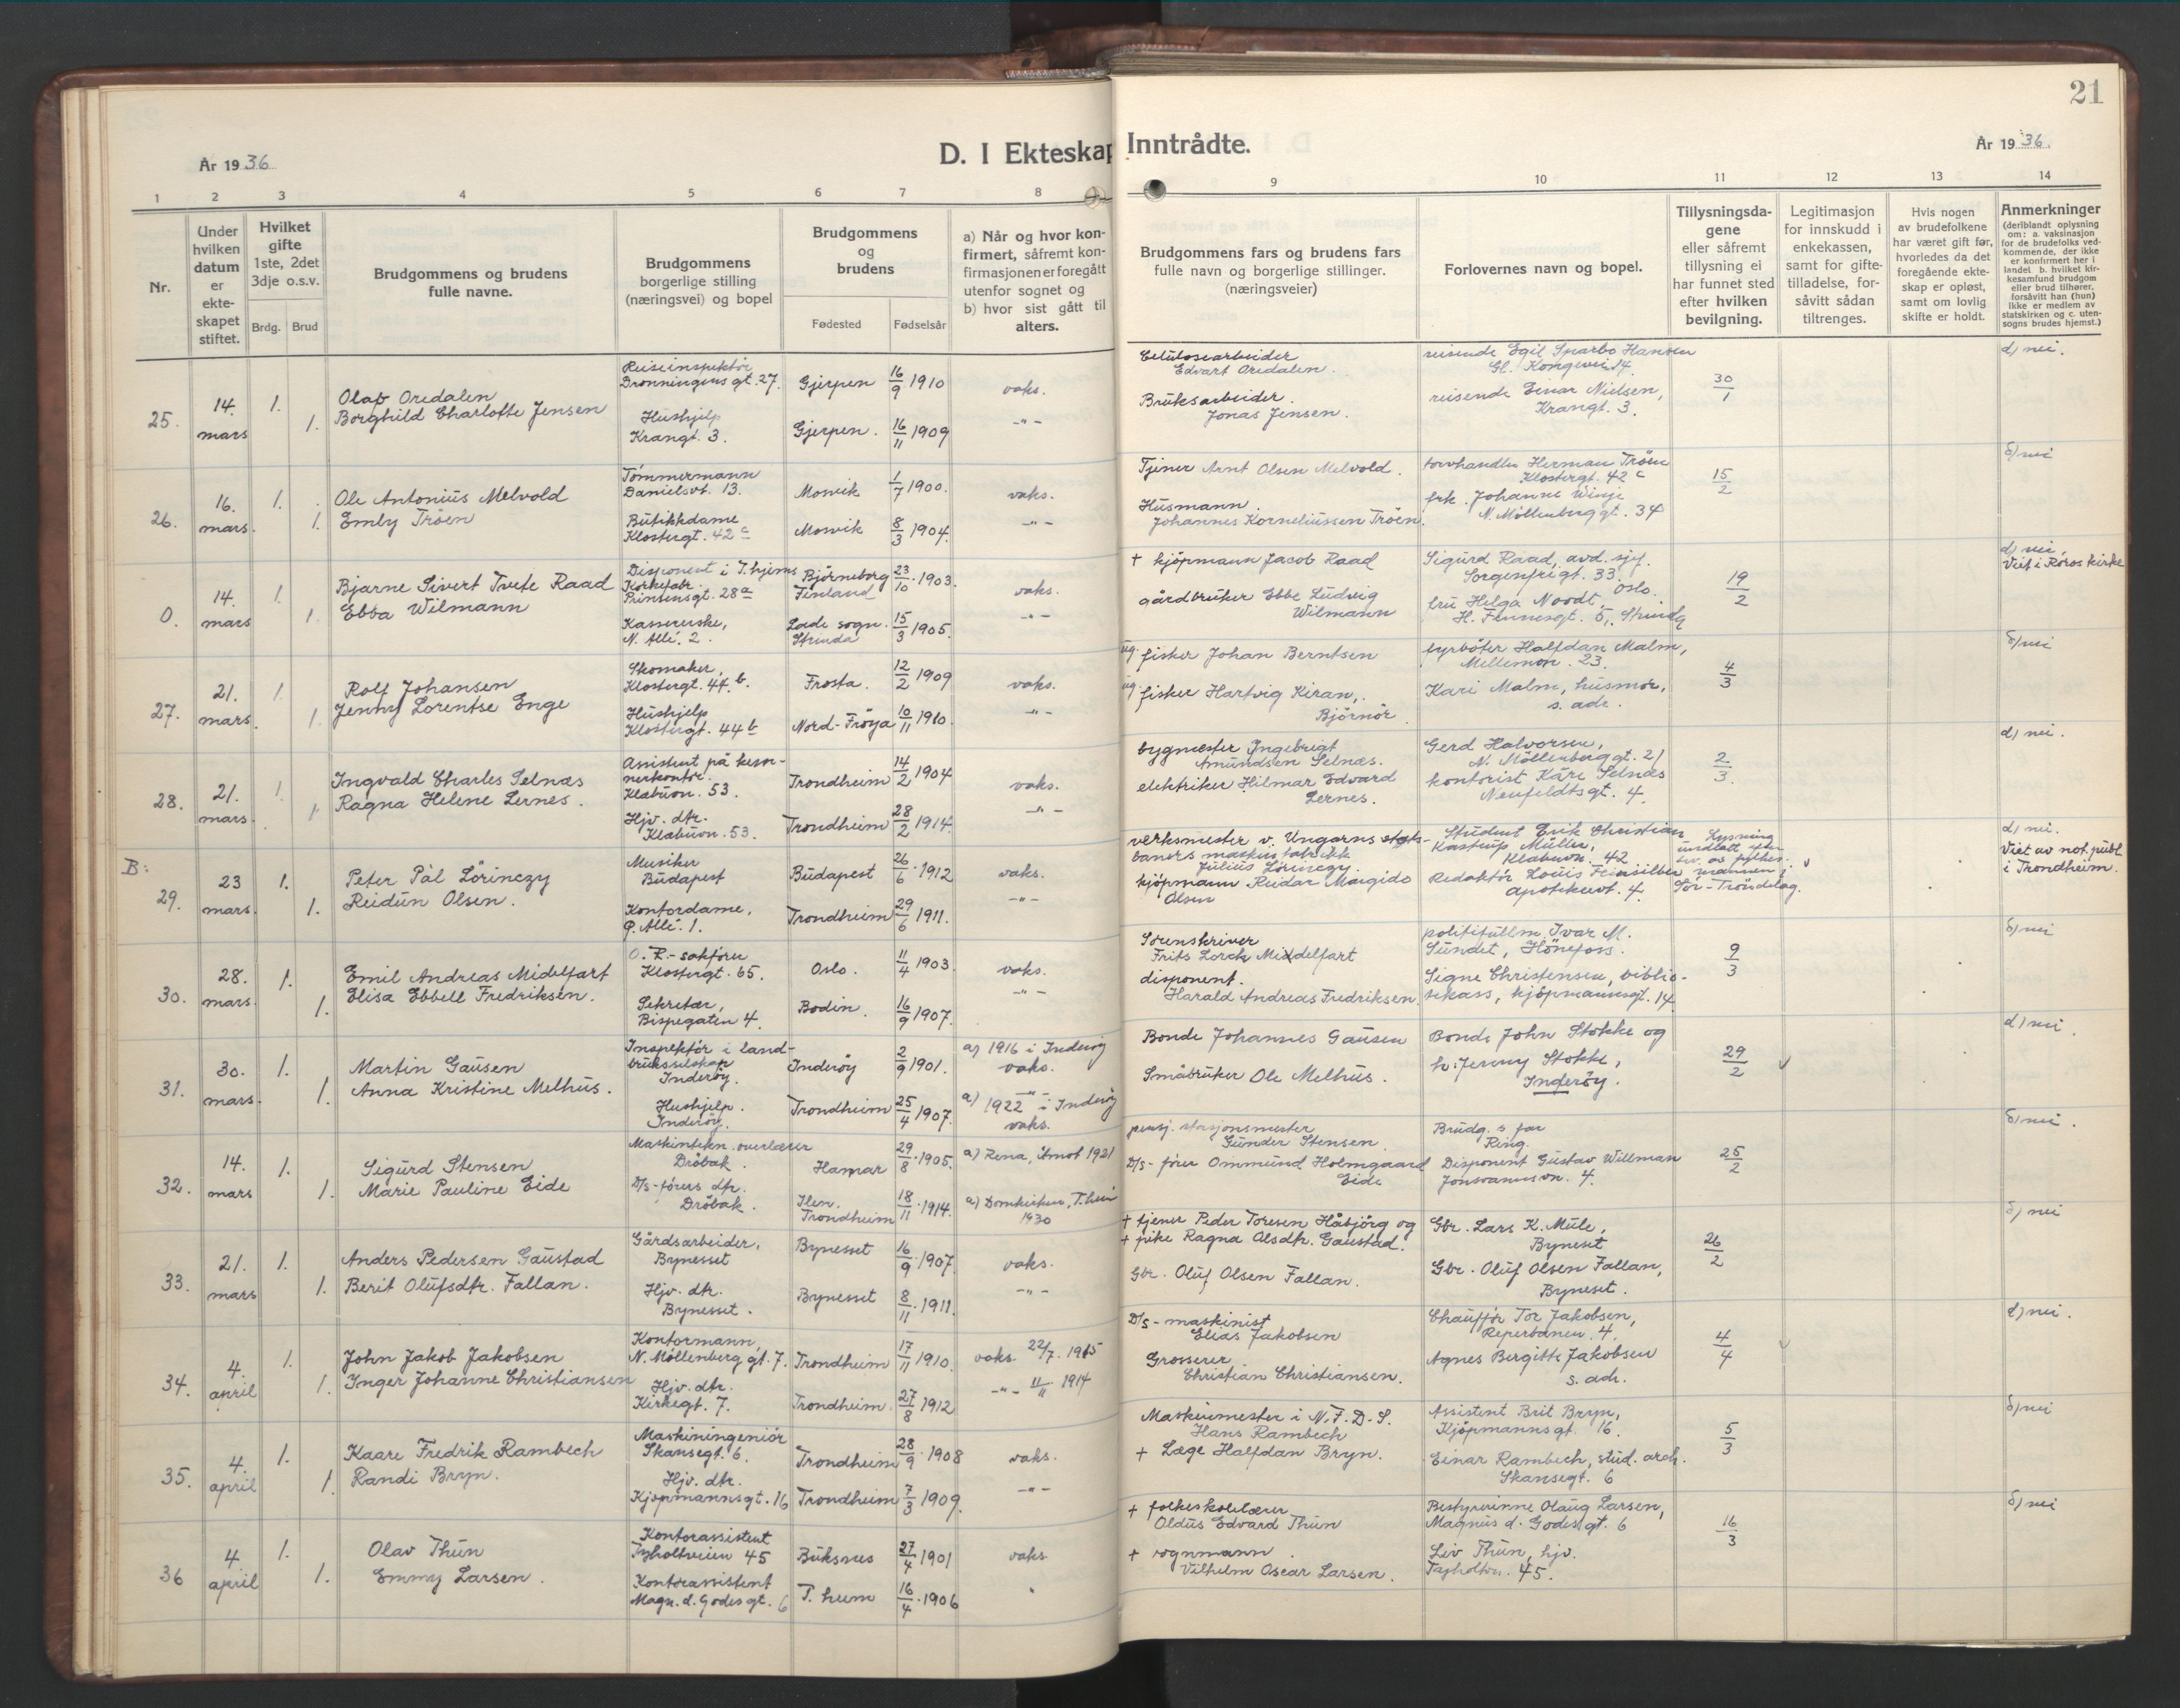 21
År 1936
D. I Ekteskap Inntrådte.
År 1936.
1 2 3 4 5 6 7 8 9 10 11 12 13 14
Nr.
Under hvilken datum er ekteskapet stiftet.
Hvilket gifte 1ste, 2det 3dje o.s.v.
Brdg. Brud
Brudgommens og brudens fulle navne.
Brudgommens borgerlige stilling (næringsvei) og bopel
Brudgommens og brudens
Fødested Fødselsår
a) Når og hvor konfirmert, såfremt konfirmasjonen er foregått utenfor sognet og b) hvor sist gått til alters.
Brudgommens fars og brudens fars fulle navn og borgerlige stillinger. (næringsveier)
Forlovernes navn og bopel.
Tillysningsdagene eller såfremt tillysning ei har funnet sted efter hvilken bevilgning.
Legitimasjon for innskudd i enkekassen, samt for giftetilladelse, forsåvitt sådan tiltrenges.
Hvis nogen av brudefolkene har været gift før, hvorledes da det foregående ekteskap er opløst, samt om lovlig skifte er holdt.
Anmerkninger (deriblandt oplysning om: a. vaksinasjon for de brudefolks vedkommende, der ikke er konfirmert her i landet b. hvilket kirkesamfund brudgom eller brud tilhører, forsåvitt han (hun) ikke er medlem av statskirken og c. utensogns brudes hjemst.)
25. 14. mars 1. 1.
Olaf Oredalen
Borghild Charlotte Jensen
Reiseinspektör
Dronningens gt. 27.
Hushjelp
Krangt. 3.
Gjerpen 16/9 1910
Gjerpen. 16/11 1909
vaks.
-"-
Celulosearbeider
Edvart Oredalen.
Bruksarbeider.
Jonas Jensen.
reisende Egil Sparbo Hansen
Gl. Kongevei 14.
reisende Einar Nielsen,
Krangt. 3.
30/1
d) nei.
26. 16. mars. 1. 1.
Ole Antonius Melvold
Emly Tröen
Tömmermann
Danielsvt. 13.
Butikkdame
Klostergt. 42 c
Mosvik 1/7 1900.
Mosvik 8/3 1904.
vaks.
-"-
Tjener Arnt Olsen Melvold.
Husmann.
Johannes Korneliussen Tröen.
torvhandler Herman Tröen
Klostergt. 42 c
frk. Johanne Winje
N. Möllenberg gt. 34
15/2
d) nei
0. 14. mars 1. 1.
Bjarne Sivert Tvete Raad
Ebba Wilmann
Disponent i T.hjems
Korkefabr.
Prinsensgt. 28 a
Kassererske,
N. Allé. 2.
Björneborg Finland 23/10 1903.
Lade sogn. Strinda 15/3 1905.
vaks.
-"-
+ kjöpmann Jacob Raad
gårdbruker Ebbe Ludvig
Wilmann
Sigurd Raad, avd. sjef.
Sorgenfrigt. 33. Oslo.
fru Helga Noodt,
H. Finnesgt. 6, Strinda
19/2
d) nei,
Viet i Röros kirke
27. 21. mars. 1. 1.
Rolf Johansen
Jenny Lorentse Enge
Skomaker,
Klostergt. 44. b.
Hushjelp
Klostergt. 44 b
Frosta. 12/2 1909
Nord-Fröya 10/11 1910.
vaks.
-"-
ug. fisker Johan Berntsen
ug fisker Hartvig Kiran,
Björnör.
fyrböter Halfdan Malm,
Mellemon. 23.
Kari Malm, husmor,
s. adr.
4/3
d) nei
28. 21. mars. 1. 1.
Ingvald Charles Selnæs
Ragna Helene Lernes.
Assistent på kemnerkontor.
Klæbuon. 53.
Hjv. dtr.
Klæbuon. 53.
Trondheim 14/2 1904
Trondheim 28/2 1914.
vaks.
-"-
bygmester Ingebrigt
Amundsen Selnæs.
elektriker Hilmar Edvard
Lernes.
Gerd Halvorsen,
N. Möllenberg gt. 21
kontorist Kåre Selnæs
Neufeldtsgt. 4.
2/3.
d) nei.
B: 29. 23 mars. 1. 1.
Peter Pàl Lörinczy
Reidun Olsen.
Musiker
Budapest
Kontordame,
Ö. Allé. 1.
Budapest 26/6 1912
Trondheim 29/6 1911.
vaks.
-"-
verksmester v. Ungarns statsbaners maskinfabrikk
Julius Lörinczy.
kjöpmann Reidar Margido
Olsen
Student Erik Christian
Kastrup Müller,
Klæbuvn. 42
Redaktör Louis Feinsilber
Apotekervt. 4.
Lysning
undlatt efter
bev. av fylkesmannen i
Sör-Tröndelag.
v
d) nei.
Viet av not. publ.
i Trondheim.
30. 28. mars. 1. 1.
Emil Andreas Midelfart
Elisa Ebbell Fredriksen.
O.R.-sakförer
Klostergt. 65.
Sekretær,
Bispegaten 4.
Oslo. 11/4 1903.
Bodin. 16/9 1907.
vaks.
-"-
Sorenskriver
Frits Lorck Middelfart
disponent.
Harald Andreas Fredriksen.
politifullm. Ivar M.
Sundet, Hönefoss.
Signe Christensen, bibliotekass, kjöpmannsgt. 14
9/3
d) nei
31. 30. mars. 1. 1.
Martin Gausen
Anna Kristine Melhus.
Inspektör i landbruksselskap
Inderöy.
Hushjelp.
Inderöy.
Inderöy 2/9 1901.
Trondheim 25/4 1907.
a) 1916 i Inderöy
vaks.
a) 1922 i Inderöy
vaks.
Bonde Johannes Gausen
Småbruker Ole Melhus.
Bonde John Stokke og
h: Jenny Stokke,
Inderöy.
29/2
v
d) nei.
32. 14. mars 1. 1.
Sigurd Stensen
Marie Pauline Eide
Maskintekn. overlærer
Dröbak.
D/s-förers dtr.
Dröbak.
Hamar 29/8 1905.
Ilen. Trondheim 18/11 1914.
a) Rena, Åmot 1921
a) Domkirken, T.heim
1930
pensj. stasjonsmester
Gunder Stensen.
D/s-förer Ommund Holmgaard
Eide
Brudg. s far
Ring.
Disponent Gustav Willman
Jonsvannsvn. 4.
25/2
d) nei.
33. 21. mars 1. 1.
Anders Pedersen Gaustad
Berit Olufsdtr. Fallan.
Gårdsarbeider,
Bynesset
Hjv. dtr.
Bynesset.
Bynesset 16/9 1907.
Bynesset 8/11 1911.
vaks.
-"-
+ tjener Peder Toresen Håbjörg og
+ pike Ragna Olsdtr. Gaustad.
Gbr. Oluf Olsen Fallan.
Gbr. Lars K. Mule,
Byneset
Gbr. Oluf Olsen Fallan,
Byneset.
26/2
d) nei
34. 4. april 1. 1.
John Jakob Jakobsen
Inger Johanne Christiansen
Kontormann,
N. Möllenberg gt. 7.
Hjv. dtr.
Kirkegt. 7.
Trondheim 17/11 1910.
Trondheim. 27/8 1912
vaks. 22/7. 1915
-"- 11/11 1914
D/s-maskinist
Elias Jakobsen
Grosserer
Christian Christiansen.
Chaufför Tor Jakobsen,
Reperbanen. 4.
Agnes Bergitte Jakobsen
s. adr.
4/4
v
d) nei.
35. 4. april 1. 1.
Kaare Fredrik Rambech
Randi Bryn.
Maskiningeniör
Skansegt. 6.
Hjv. dtr.
Kjöpmannsgt. 16
Trondheim 28/9 1908
Trondheim 7/3 1909.
vaks.
-"-
Maskinmester i N.F.D.S.
Hans Rambech
+ Læge Halfdan Bryn.
Assistent Brit Bryn,
Kjöpmannsgt. 16.
Einar Rambech, stud. arch.
Skansegt. 6
5/3
d) nei
36 4. april 1. 1.
Olav Thun
Emmy Larsen.
Kontorassistent
Tyholtveien 45
Kontorassistent
Magn. d. Godes gt. 6
Buksnes 27/4 1901
T.heim 16/4 1906
vaks.
"
+ folkeskolelærer
Oldus Edvard Thun
+ vognmann.
Vilhelm Oscar Larsen.
Bestyrerinne Olaug Larsen,
Magnus d. Godes gt. 6
Liv Thun, hjv.
Tyholtv. 45.
16/3
d) nei